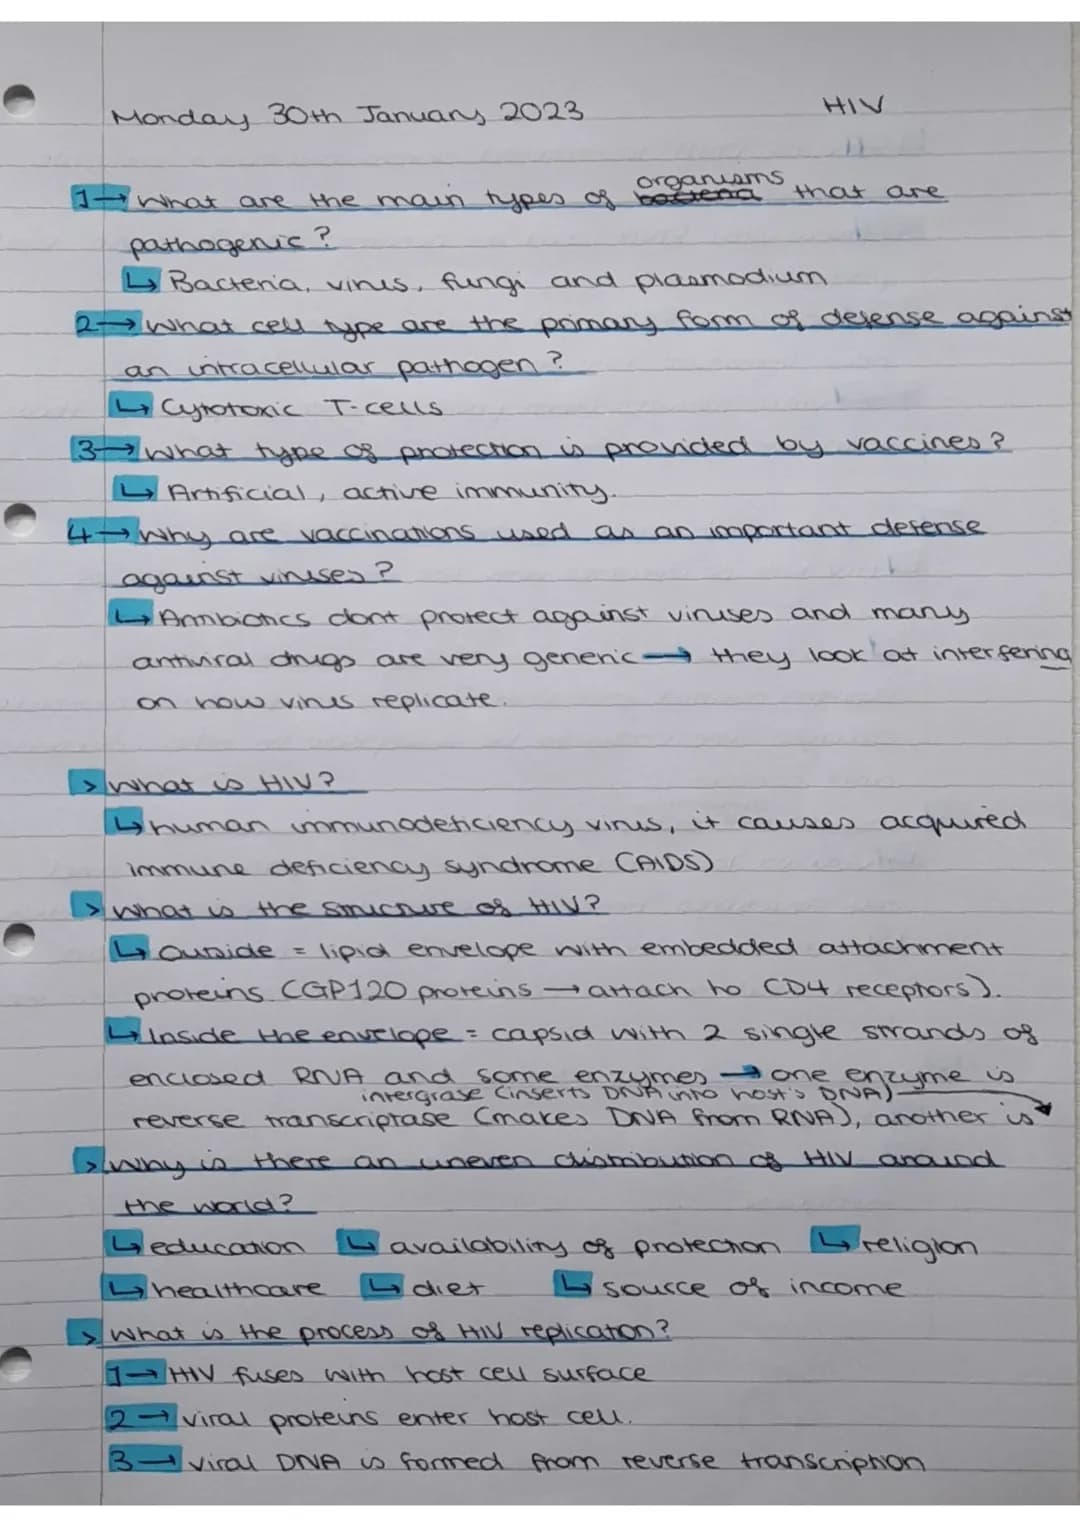 Monday 30th January 2023 HIV
1→ What are the main types of bacteria organisms that are
pathogenic?
↳ Bacteria, virus, fungi and plasmodium
2→ What cell type are the primary form of defense against
an intracellular pathogen?
↳ Cytotoxic T-cells
3→ What type of protection is provided by vaccines?
↳ Artificial, active immunity.
4→ Why are vaccinations used as an important defense
against viruses?
↳ Antibiotics dont protect against viruses and many
antiviral drugs are very generic → they look at interfering
on how virus replicate.
> What is HIV?
↳ human immunodeficiency virus, it causes acquired
immune deficiency syndrome (AIDS)
> What is the structure of HIV?
↳ Outside = lipid envelope with embedded attachment
proteins (GP120 proteins → attach to CD4 receptors).
↳ Inside the envelope = capsid with 2 single strands of
enclosed RNA and some enzymes → one enzyme is
reverse transcriptase (makes DNA from RNA), another is
intergrase (inserts DNA into host's DNA)
> Why is there an uneven distribution of HIV around
the world?
↳ education ↳ availability of protection ↳ religion
↳ healthcare ↳ diet ↳ source of income
> What is the process of HIV replication?
1→ HIV fuses with host cell surface
2→ viral proteins enter host cell.
3→ viral DNA is formed from reverse transcription